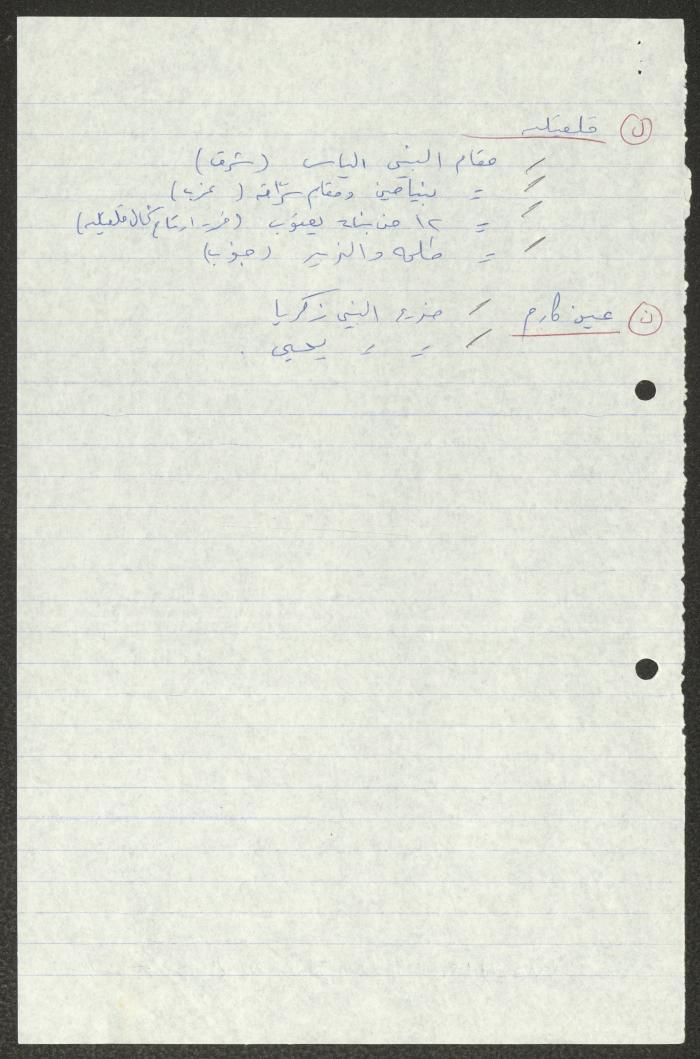 ل قلقيلية
/ مقام النبي الياس (شرق)
/ = بنيامين ومقام سراقة (غرب)
/ = ١٢ من بنات يعقوب ( شمال قلقيلية)
/ = طلحه والزبير (جنوب)
ن عين كارم / النبي زكريا
/ = = يحيى .